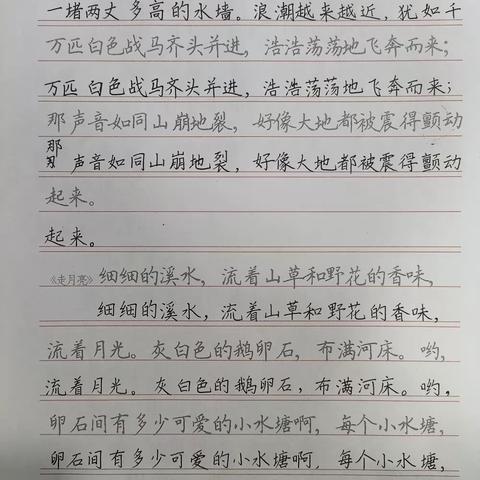 一堵两丈多高的水墙。浪潮越来越近，犹如千
万匹白色战马齐头并进，浩浩荡荡地飞奔而来；
万匹白色战马齐头并进，浩浩荡荡地飞奔而来；
那声音如同山崩地裂，好像大地都被震得颤动
那声音如同山崩地裂，好像大地都被震得颤动
起来。
起来。
《走月亮》细细的溪水，流着山草和野花的香味，
细细的溪水，流着山草和野花的香味，
流着月光。灰白色的鹅卵石，布满河床。哟，
流着月光。灰白色的鹅卵石，布满河床。哟，
卵石间有多少可爱的小水塘啊，每个小水塘，
卵石间有多少可爱的小水塘啊，每个小水塘，